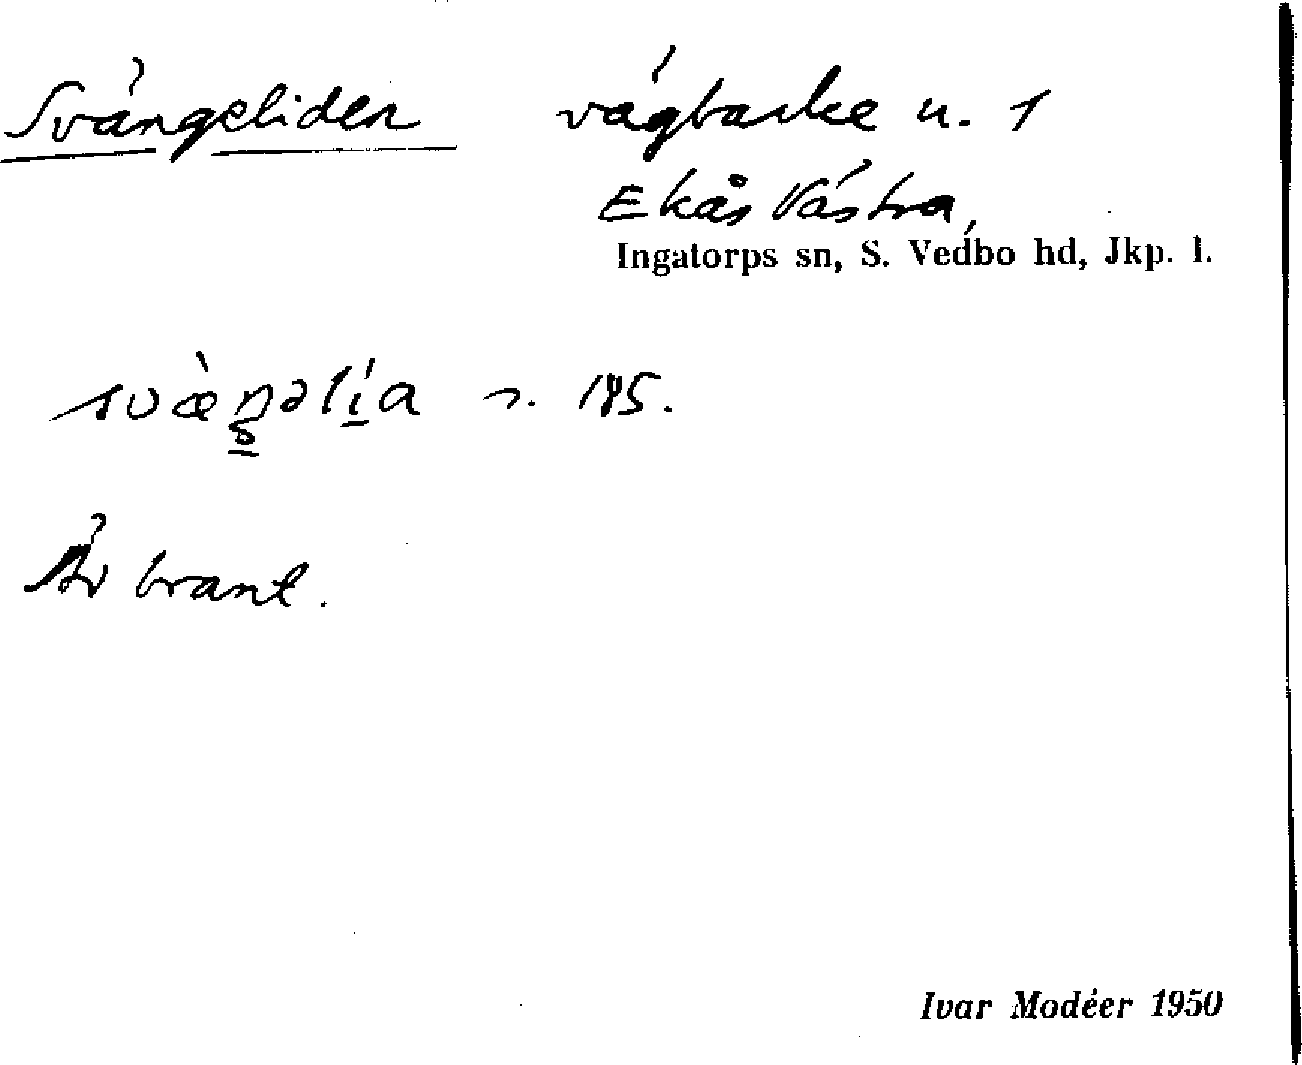 Svängeliden vägbacke u. 1
Ekås Västra,
Ingatorps sn, S. Vedbo hd, Jkp. l.
svæ̀ŋəlía s. 185.
Är brant.
Ivar Modéer 1950